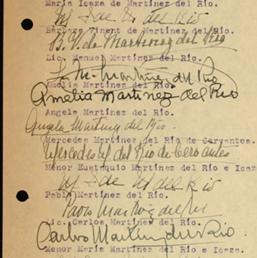 María Icaza de Martínez del Río.
M I de M del Río
Bárbara Vinent de Martínez del Río.
B. V. de Martínez del Río
Lic. Manuel Martínez del Río.
M. Martínez del Río
Amelia Martínez del Río.
Amelia Martínez del Río
Angela Martínez del Río.
Angela Martínez del Río.
Mercedes Martínez del Río de Cervantes.
Mercedes M del Río de Cervantes
Menor Eustaquio Martínez del Río e Icaza
M I de M del Río
Pablo Martínez del Río.
Pablo Martínez del Río
Lic. Carlos Martínez del Río.
Carlos Martínez del Río.
Menor María Martínez del Río e Icaza.